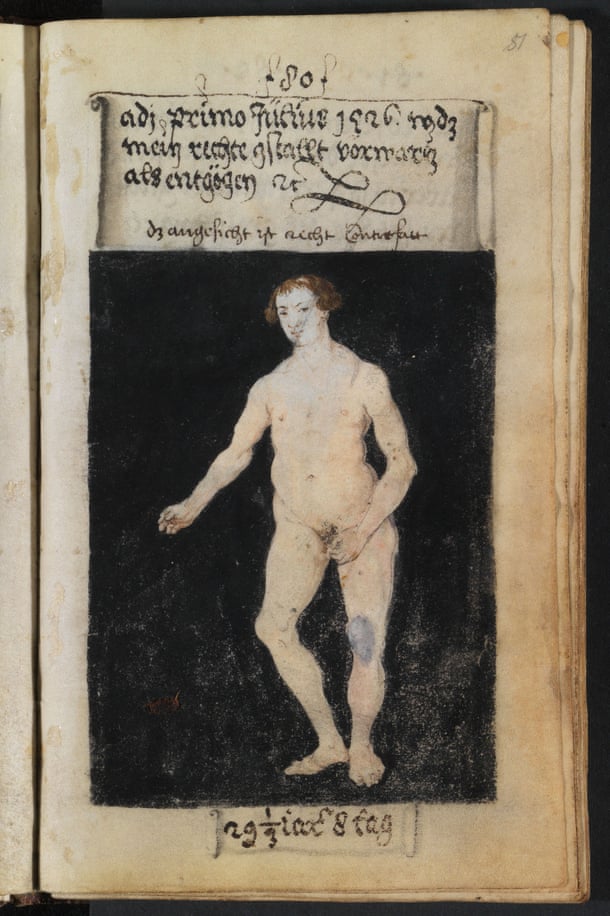 51
f 80 f
adj primo Jülius 1526. wz
mein rechte gstallt vorwartz
als entgögen
dz angesicht ist recht Contrafatt
29 1/3 iar 8 tag